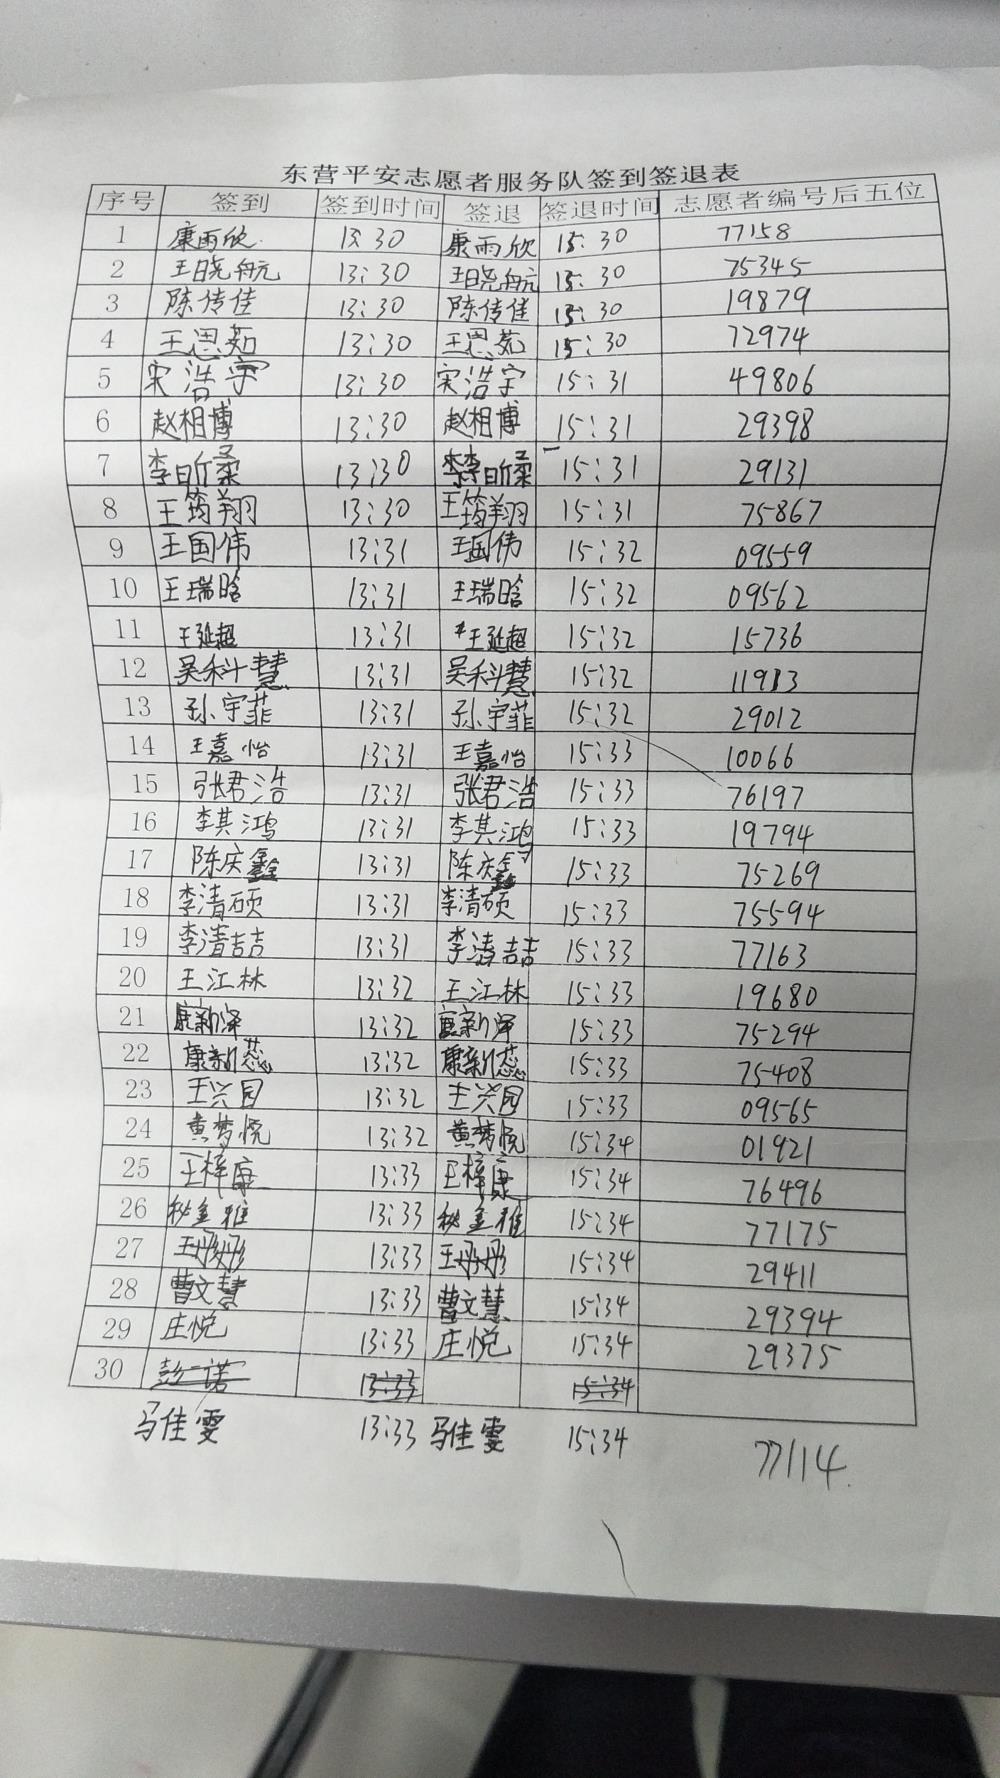 东营平安志愿者服务队签到签退表
序号 签到 签到时间 签退 签退时间 志愿者编号后五位
1 康雨欣 13:30 康雨欣 15:30 77158
2 王晓航 13:30 王晓航 15:30 75345
3 陈传佳 13:30 陈传佳 15:30 19879
4 王思茹 13:30 王思茹 15:30 72974
5 宋浩宇 13:30 宋浩宇 15:31 49806
6 赵相博 13:30 赵相博 15:31 29398
7 李昕柔 13:30 李昕柔 15:31 29131
8 王筠翔 13:30 王筠翔 15:31 75867
9 王国伟 13:31 王国伟 15:32 09559
10 王瑞晗 13:31 王瑞晗 15:32 09562
11 王延超 13:31 王延超 15:32 15736
12 吴科慧 13:31 吴科慧 15:32 11913
13 孙宇菲 13:31 孙宇菲 15:32 29012
14 王嘉怡 13:31 王嘉怡 15:33 10066
15 张君浩 13:31 张君浩 15:33 76197
16 李其鸿 13:31 李其鸿 15:33 19794
17 陈庆鑫 13:31 陈庆鑫 15:33 75269
18 李清硕 13:31 李清硕 15:33 75594
19 李清喆 13:31 李清喆 15:33 77163
20 王江林 13:32 王江林 15:33 19680
21 康新泽 13:32 康新泽 15:33 75294
22 康新蕊 13:32 康新蕊 15:33 75408
23 王兴园 13:32 王兴园 15:33 09565
24 黄梦悦 13:32 黄梦悦 15:34 01921
25 王梓康 13:33 王梓康 15:34 76496
26 秘金雅 13:33 秘金雅 15:34 77175
27 王彤彤 13:33 王彤彤 15:34 29411
28 曹文慧 13:33 曹文慧 15:34 29394
29 庄悦 13:33 庄悦 15:34 29375
30 彭一诺 13:33 15:34
马佳雯 13:33 马佳雯 15:34 77114